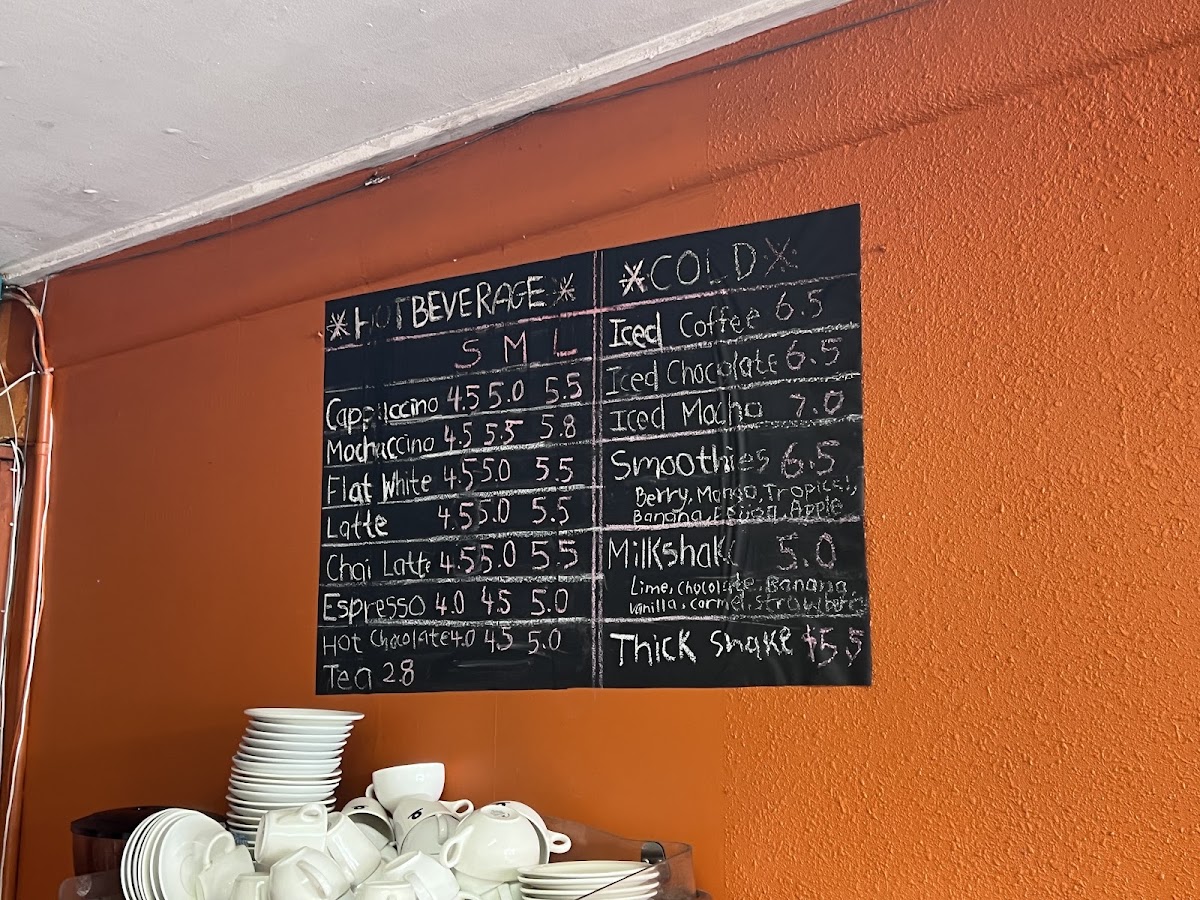 *HOT BEVERAGE*
S M L
Cappuccino 4.5 5.0 5.5
Mochaccino 4.5 5.5 5.8
Flat White 4.5 5.0 5.5
Latte 4.5 5.0 5.5
Chai Latte 4.5 5.0 5.5
Espresso 4.0 4.5 5.0
Hot Chocolate 4.0 4.5 5.0
Tea 2.8
*COLD*
Iced Coffee 6.5
Iced Chocolate 6.5
Iced Mocha 7.0
Smoothies 6.5
Berry, Mango, Tropical,
Banana, Feijoa, Apple
Milkshake 5.0
Lime, Chocolate, Banana,
Vanilla, Carmel, Strawberry
Thick Shake $5.5